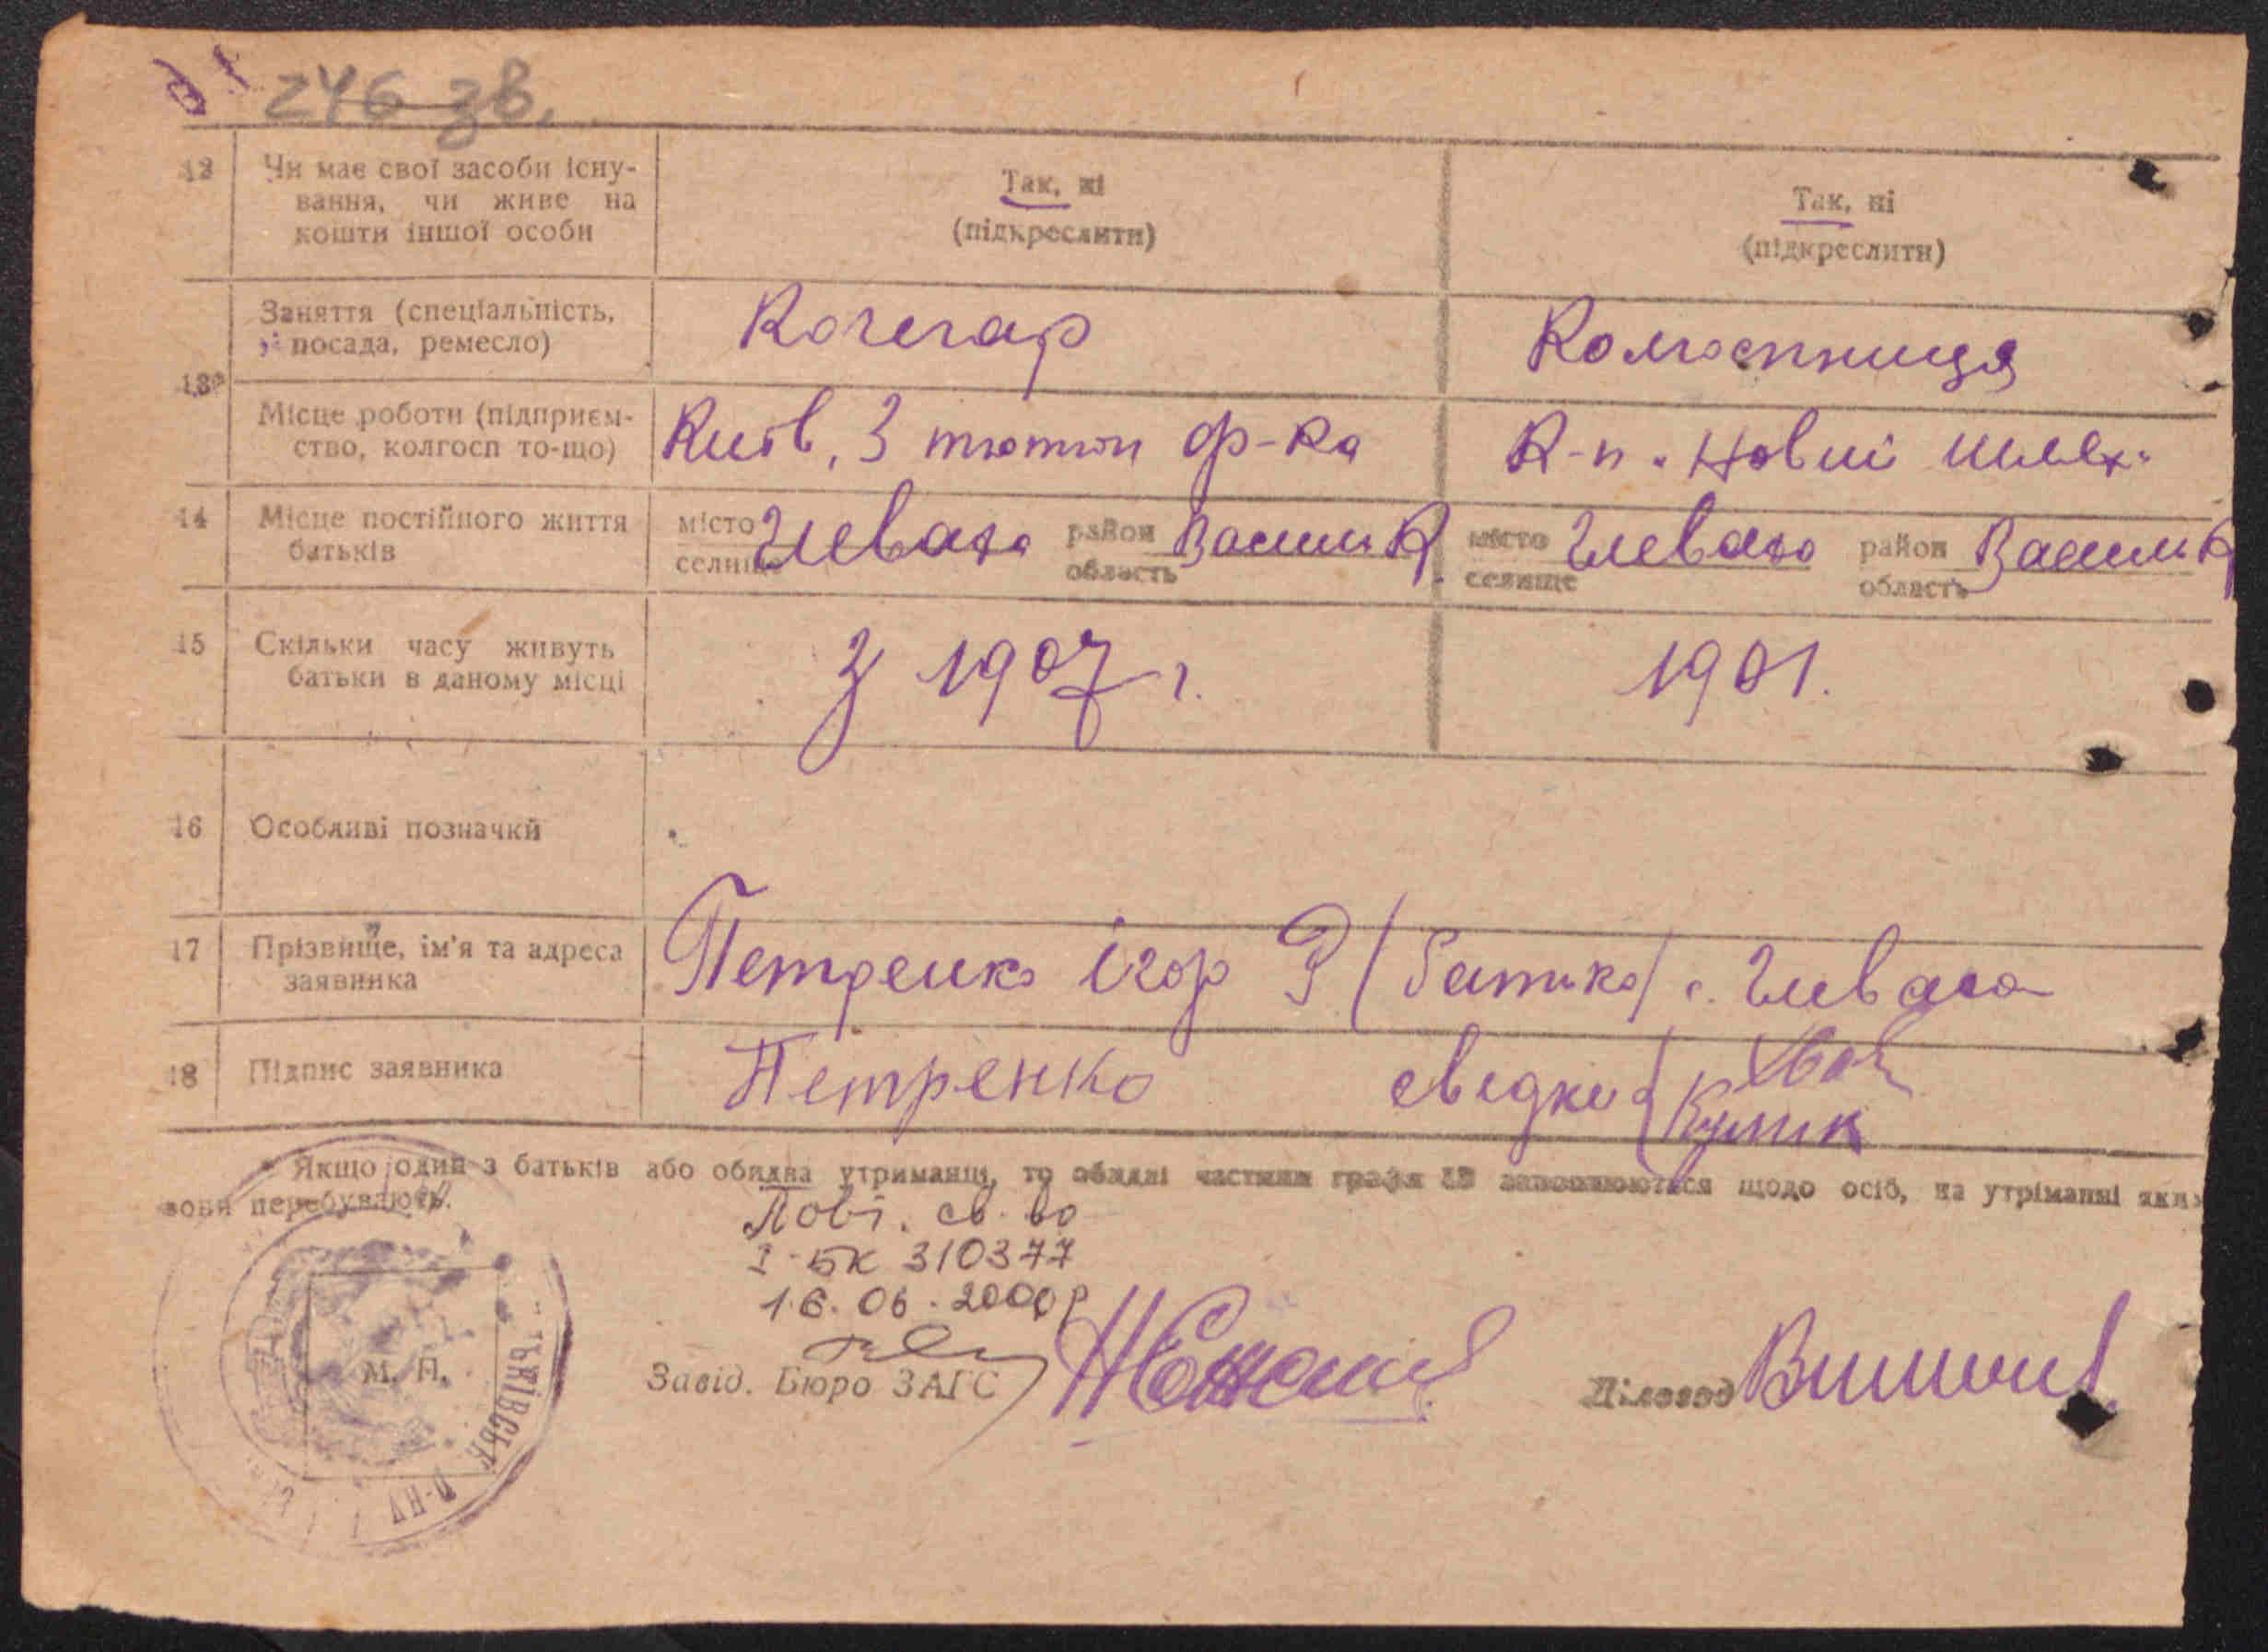 246 зв.
12 Чи має свої засоби існу-
вання, чи живе на
кошти іншої особи
Так, ні
(підкреслити)
Так, ні
(підкреслити)
13
Заняття (спеціальність,
посада, ремесло)
Кочегар
Колгоспниця
Місце роботи (підприєм-
ство, колгосп то-що)
Київ, 3 тютюн ф-ка
К-п "Новий шлях"
14 Місце постійного життя
батьків
місто
селище
Глеваха
район
область
Васильк.
місто
селище
Глеваха
район
область
Васильк
15 Скільки часу живуть
батьки в даному місці
З 1907 г.
1901.
16 Особливі позначки
17 Прізвище, ім'я та адреса
заявника
Петренко ігор (батько) с. Глеваха
18 Підпис заявника
Петренко свідки Кулик
Якщо один з батьків або обидва утриманці, то обидві частини графи 13 заповнюються щодо осіб, на утріманні яких
вони перебувають.
Повт. св. во
I-БК 310377
16.06.2000 р
М. П.
Завід. Бюро ЗАГС
Діловод
Р-НУ